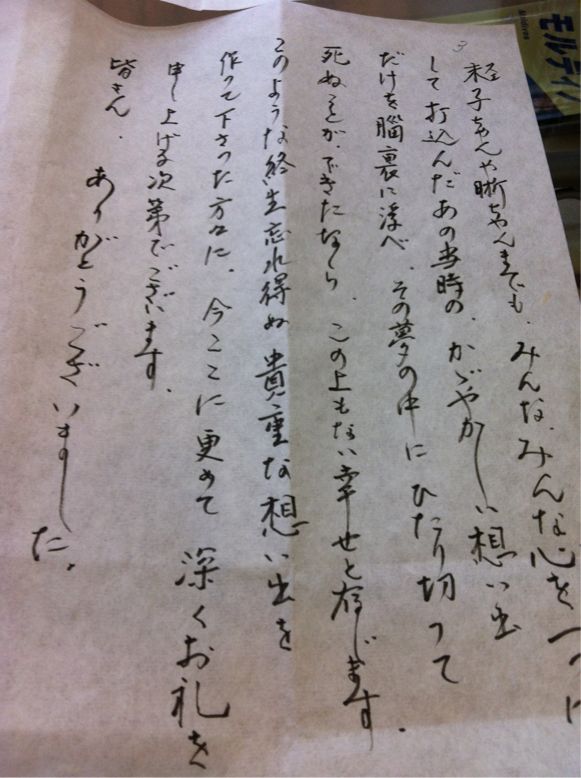 モルディ
Maldives
3
子ちゃんや晰ちゃんまでも、みんな、みんな心を一つに
して打込んだあの当時の、かゞやかしい想い出
だけを腦裏に浮べ、その夢の中にひたり切って
死ぬことが、できたなら、この上もない幸せと存じます。
このような終生忘れ得ぬ貴重な想い出を
作って下さった方々に、今ここに更めて深くお礼を
申し上げる次第でございます。
皆さん、ありがとうございました。